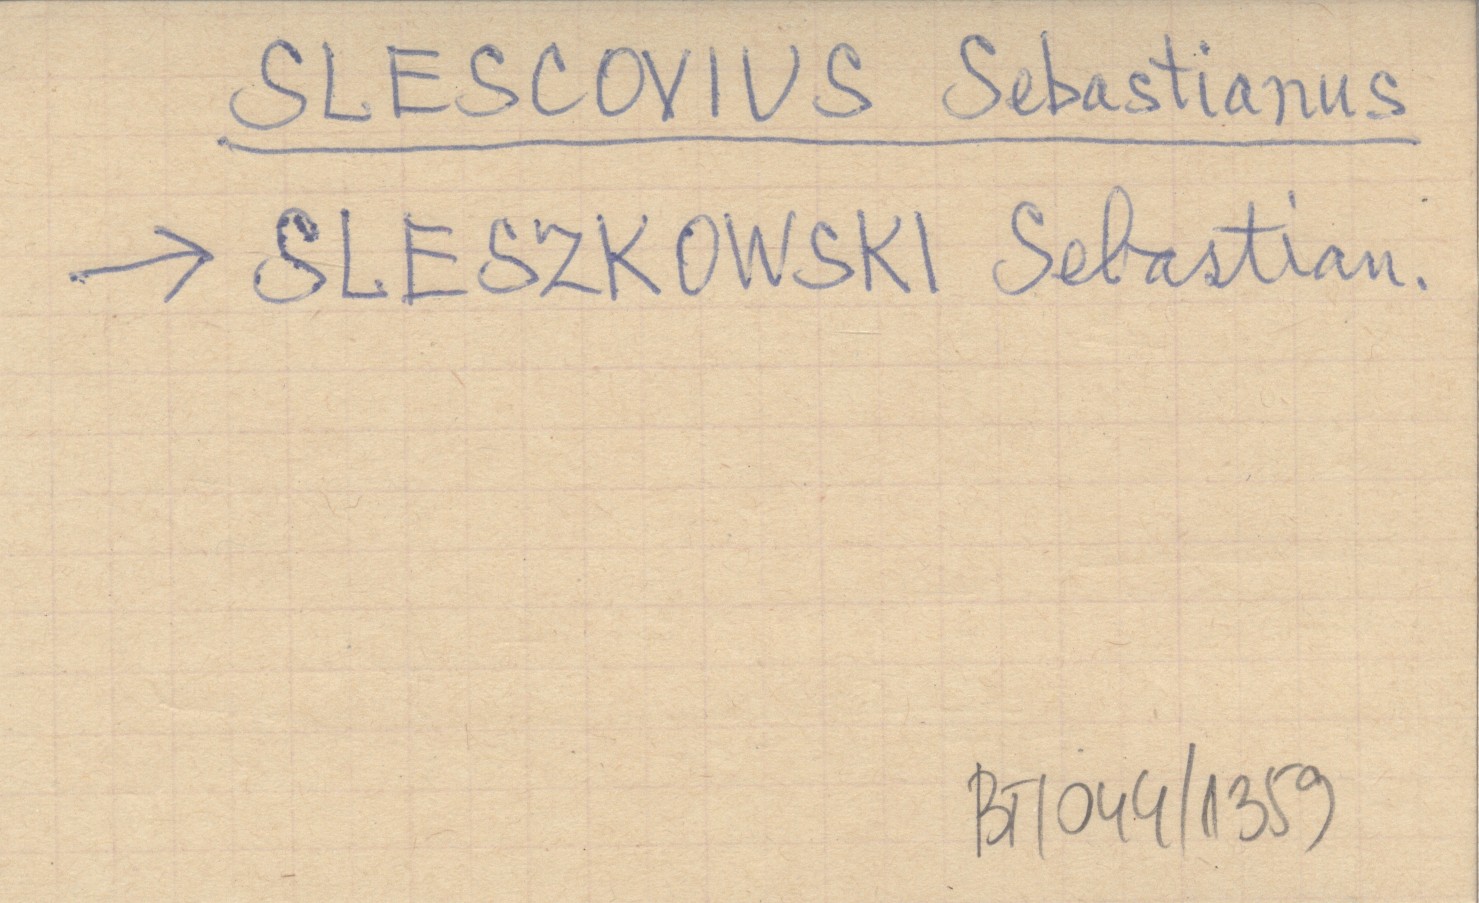 SLESCOVIUS Sebastianus
→ SLESZKOWSKI Sebastian.
BT/044/1359